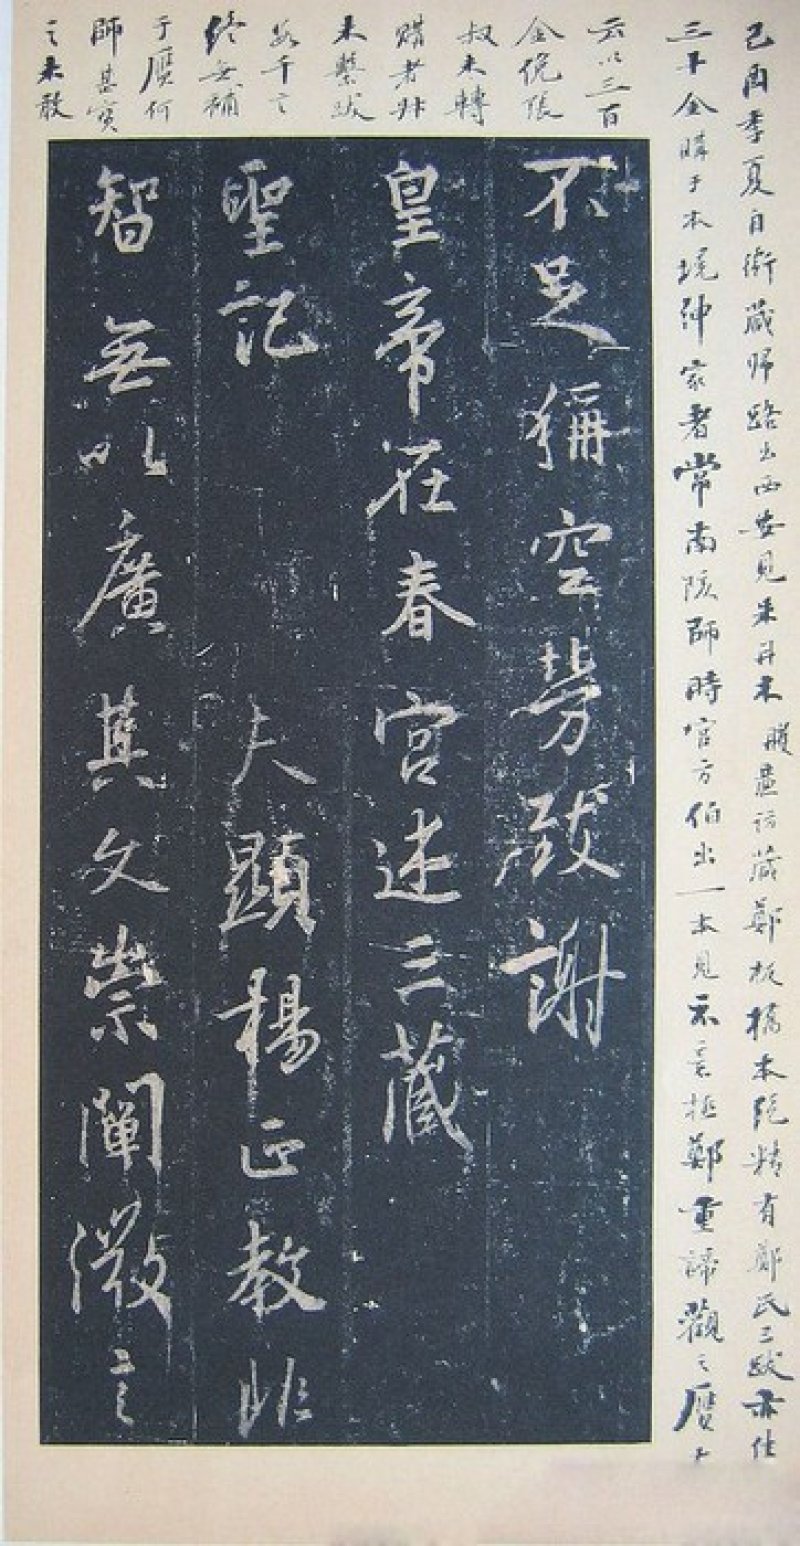 己酉季夏自衛藏歸路出西安見朱丹木 臒盦訪藏鄭板橋本絕精有鄭氏三跋亦佳
三千金購于本境紳家者常南陔師時官方伯出一本見示意極鄭重諦觀之贋
云以三百
金倩張
叔未轉
購者卝
未槷跋
數千言
終無補
于贋何
師甚寳
之未敢
不足稱空勞致謝
皇帝在春宮述三藏
聖記
夫顯楊正教非
智無以廣其文崇闡微言